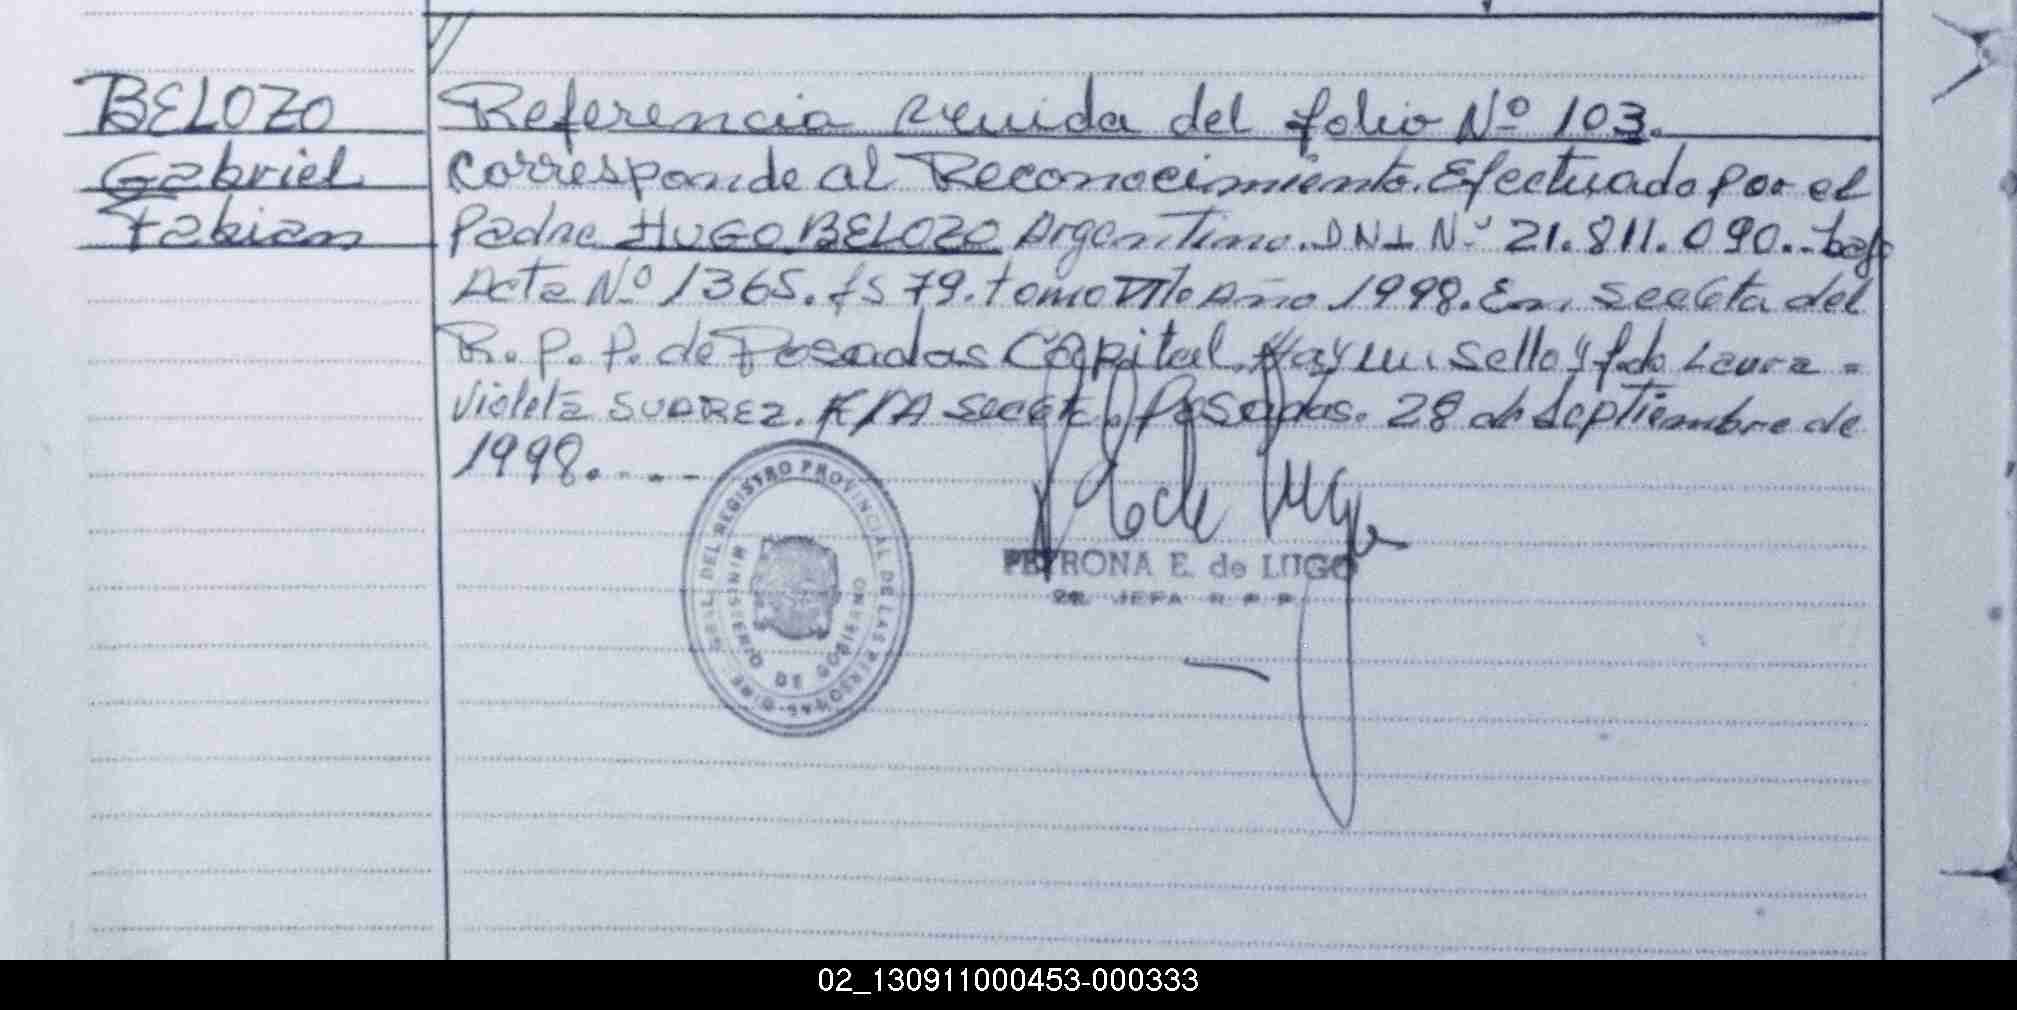 BELOZO
Gabriel
Fabian
Referencia venida del folio Nº 103.
corresponde al Reconocimiento. Efectuado por el
padre HUGO BELOZO Argentino. DNI Nº 21.811.090. bajo
Acta Nº 1365. fs 79. tomo Año 1998. En. del
R. P. P. de Posadas Capital. Hay un sello y fdo Laura
Violeta SUAREZ. Posadas. 28 de Septiembre de
1998.
DIRE. GRAL. DEL REGISTRO PROVINCIAL DE LAS PERSONAS
MINISTERIO DE GOBIERNO
PETRONA E. de LUGO
JEFA R P P
02_130911000453-000333